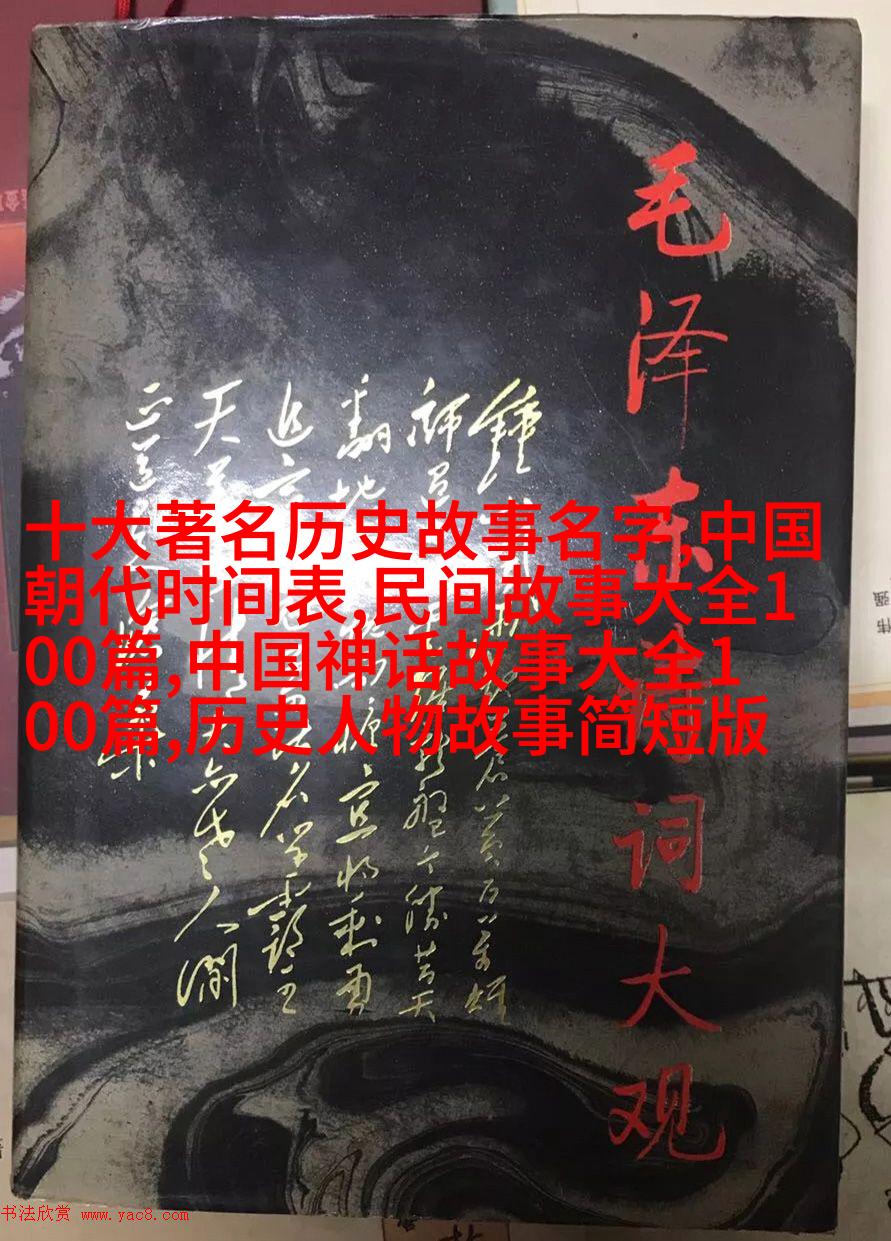 毛泽东诗词大观
鍾起苍黄百万雄
师龙盘今胜昔天
翻地宜将剩勇
追名学霸王
天若情天亦老人间
正道
十大著名历史故事名字,中国
朝代时间表,民间故事大全1
00篇,中国神话故事大全1
00篇,历史人物故事简短版
书法欣赏 www.yac8.com